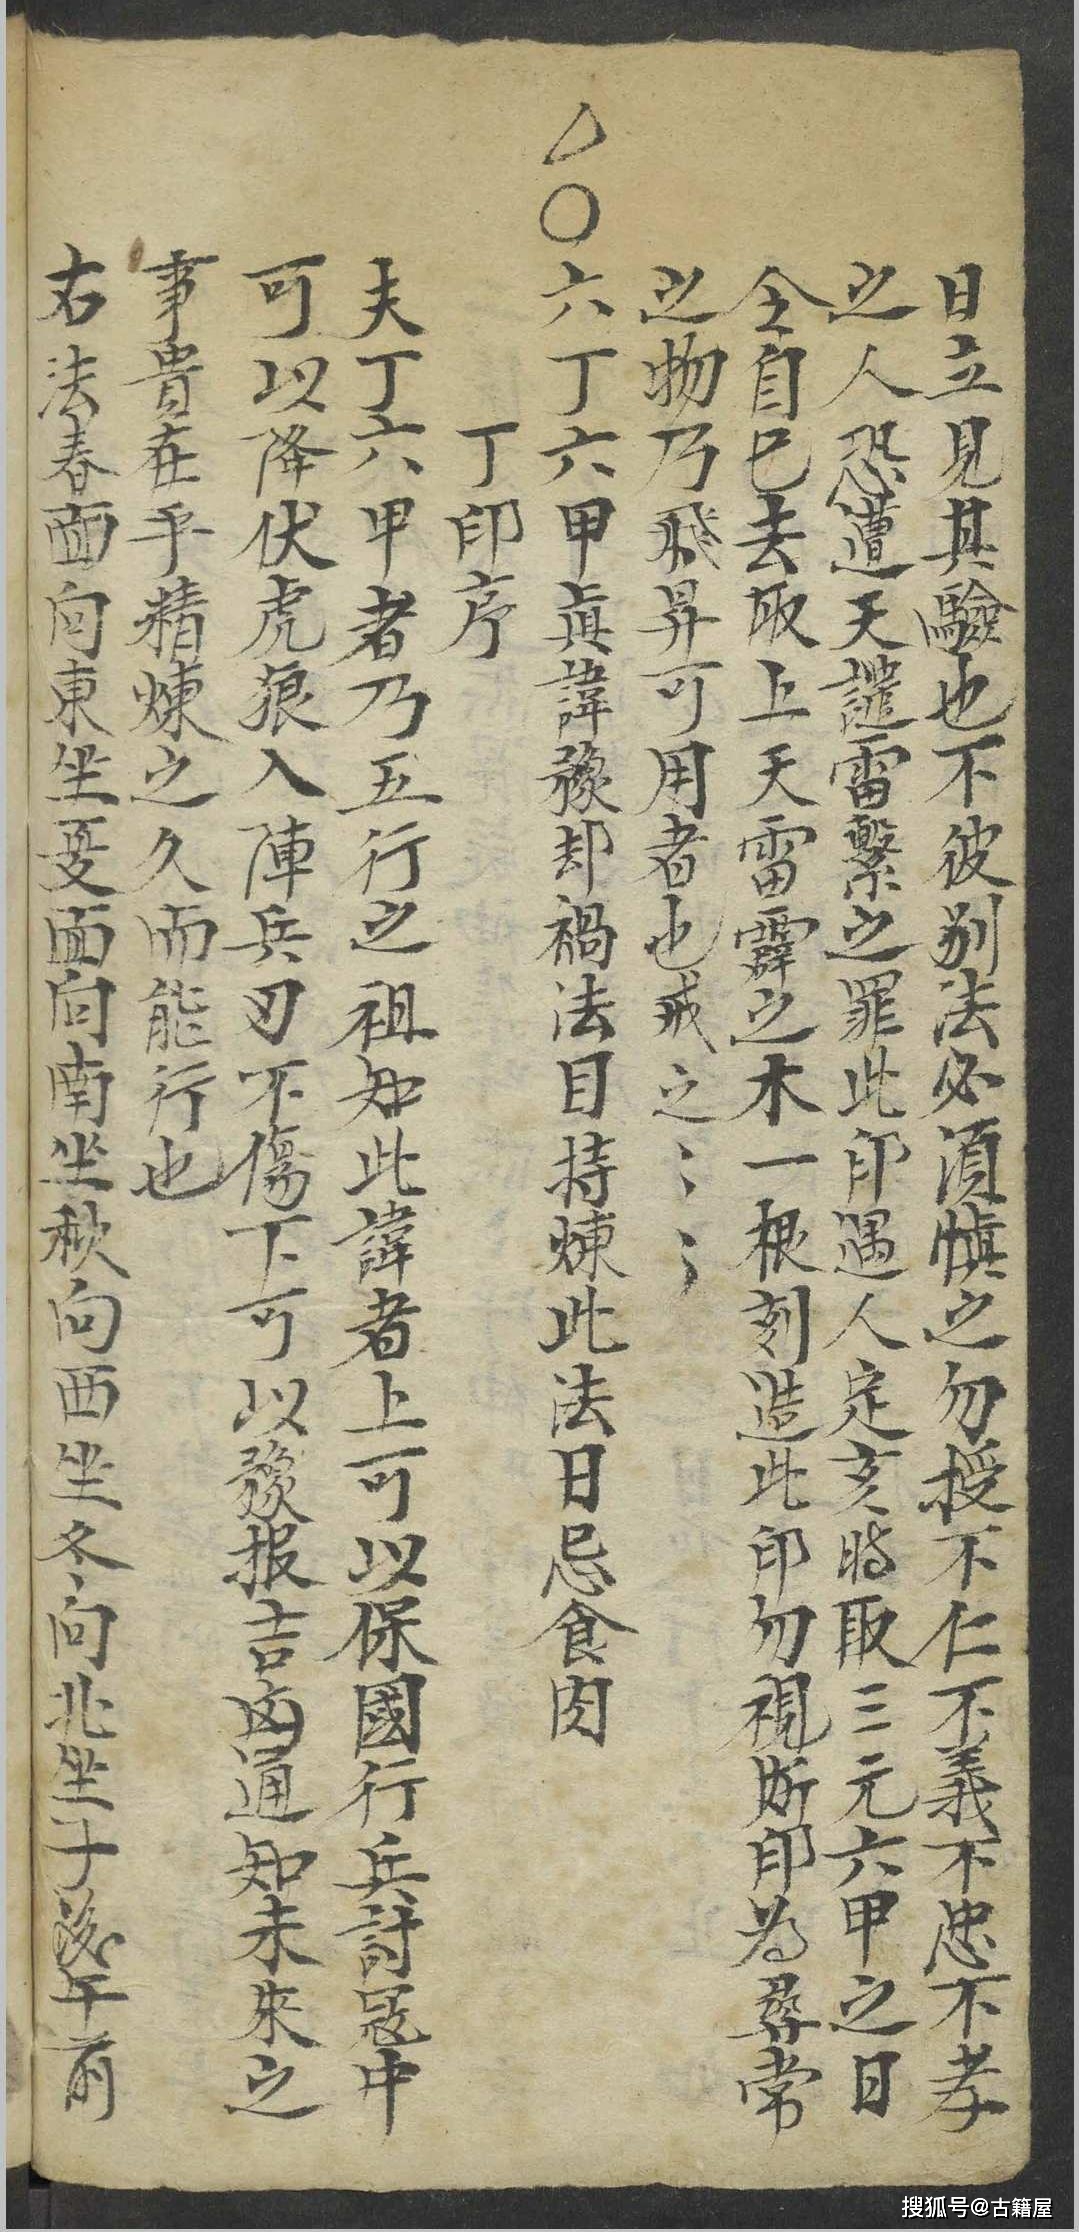 日立見其驗也不彼别法必須慎之勿授不仁不義不忠不孝
之人恐遭天譴雷擊之罪此印遇人定亥時取三元六甲之日
仝自已去取上天雷霹之木一根刻造此印勿視斯印為尋常
之物乃飛昇可用者也戒之〻〻
△〇六丁六甲真諱豫却禍法目持煉此法日忌食肉
丁印序
夫丁六甲者乃五行之祖知此諱者上可以保國行兵討寇中
可以降伏虎狼入陣兵刃不傷下可以豫报吉凶通知未來之
事貴在乎精煉之久而能行也
右法春面向東坐夏面向南坐秋向西坐冬向北坐子後午前
搜狐号@古籍屋